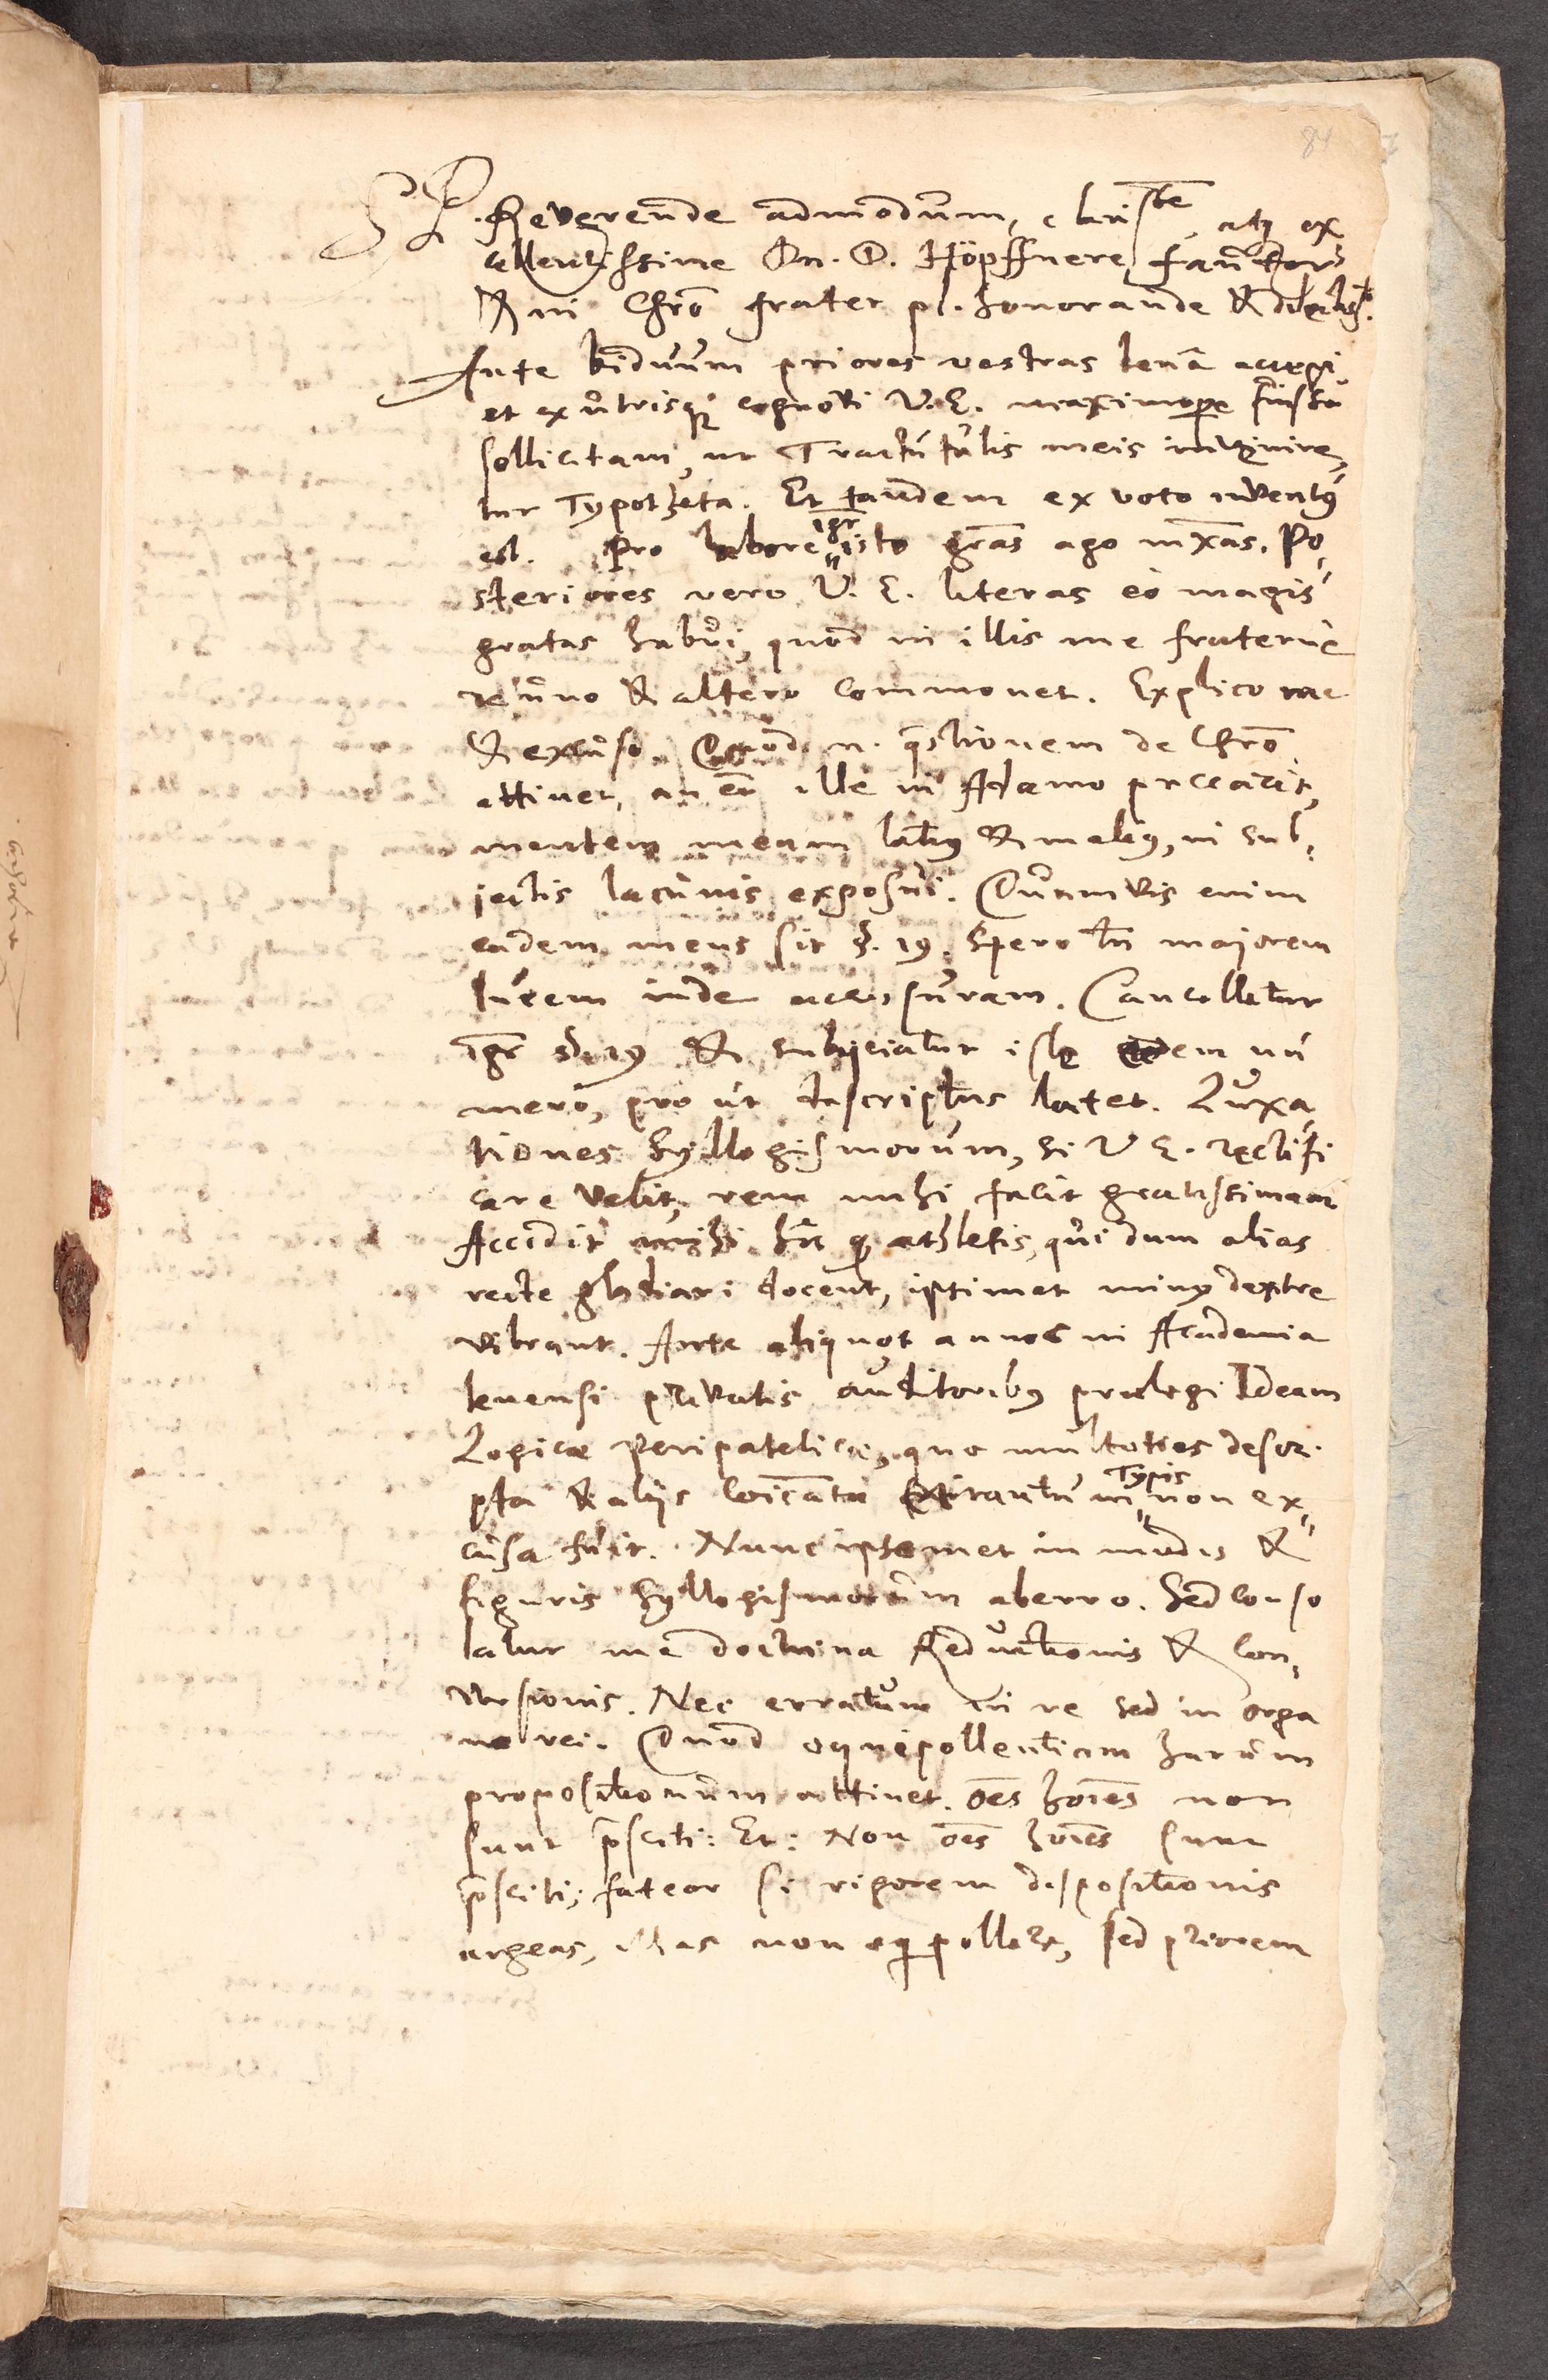 84
S. P. Reverende admodum, clarissᵉ, atq ex
cellentissime Dn. D. Höpffnere, fautor
& in Chro frater pl. honorande & dilectissᵉ.
Ante biduum priores vestras benè accepi
et ex utrisque cognovi V. E. maximopere fuisse
sollicitam, ut Tractatulis meis inveniretur
Typotheta. Et tandem ex voto inventus
est. Pro labore igr isto gras ago mxas. Po-
steriores vero V. E. literas eò magis
gratas habui, quod in illis me fraternè
de uno & altero commonet. Explico me
& excuso. Quod n. quæstionem de Chro
attinet, an etr ille in Adamo peccarit,
mentem meam latius & melius, in sub-
jectis lacinius exposui. Quamvis enim
eadem mens sit §. 19. Spero tn majorem
lucem inde accessuram. Cancelletur
igr §. 19 & subijciatur iste eodem nu
mero, pro ut descriptus latet. Luxa
tiones Syllogismorum, si V E. rectifi
care velit, rem mihi facit gratissimam
Accidit mihi hic qd athletis, qui dum alias
recte gladiari docent, ipsimet minus dextre
vibrant. Ante aliquot annos in Academia
Jenensi privatis auditoribus prælegi Ideam
Logicæ Peripateticæ, quæ multoties descri-
pta & alijs coicata tantum Typis non ex-
cusa fuit. Nunc ipsemet in modis &
figuris Syllogismorum aberro. Sed conso
latur me doctrina Reductionis & Con-
versionis. Nec erratum in re sed in orga
no rei. Quod æquipollentiam harum
propositionum attinet. oes hoies non
sunt præsciti: Et: Non oes hoies sunt
præsciti; fateor si rigorem dispositionis
urgeas, illas non æquipollere, sed priorem